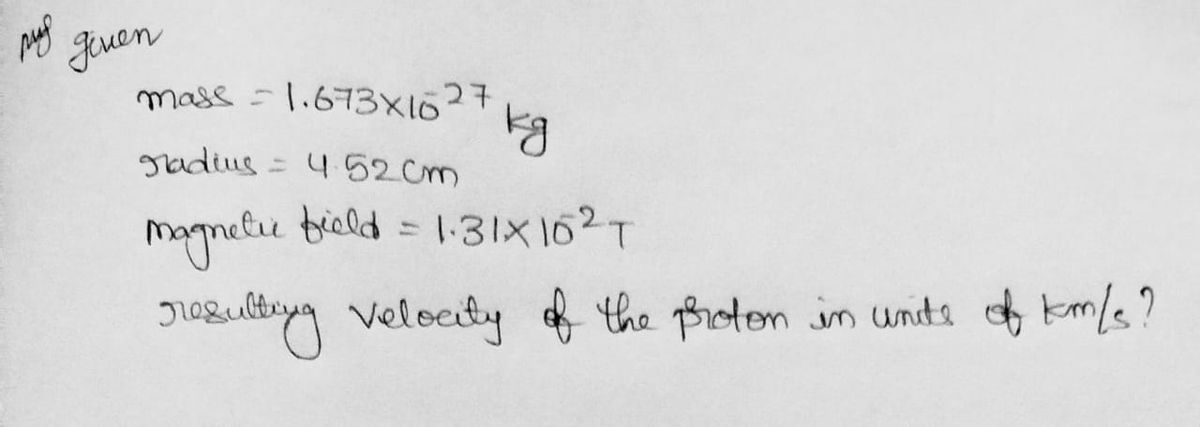 given
mass = 1.673×10⁻²⁷ kg
radius = 4.52 cm
magnetic field = 1.31×10⁻² T
resulting velocity of the proton in units of km/s?